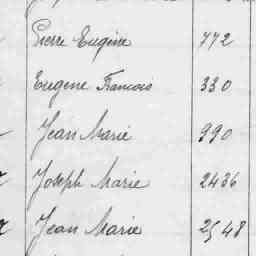 Pierre Eugène 772
Eugène Francois 330
Jean Marie 990
Joseph Marie 2436
Jean Marie 2548